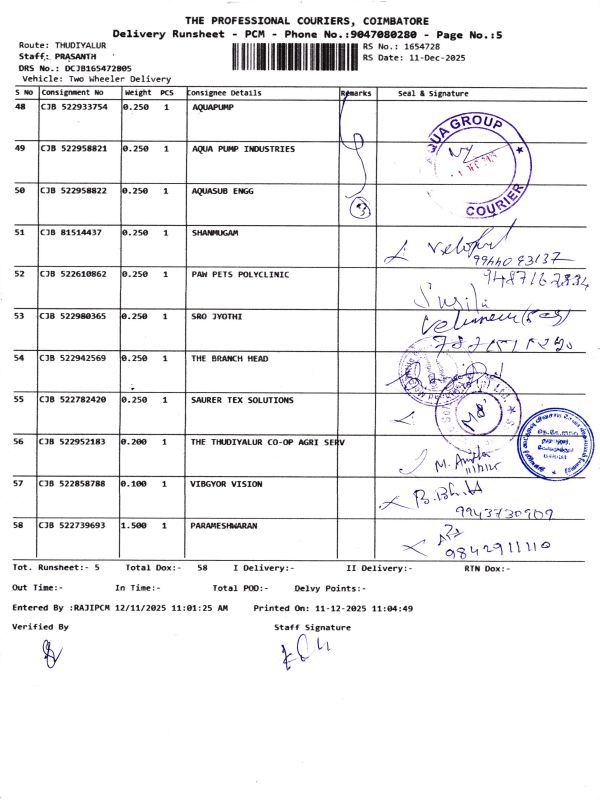 THE PROFESSIONAL COURIERS, COIMBATORE
Delivery Runsheet - PCM - Phone No.:9047080280 - Page No.:5
Route: THUDIYALUR RS No.: 1654728
Staff: PRASANTH RS Date: 11-Dec-2025
DRS No.: DCJB165472805
Vehicle: Two Wheeler Delivery
S No Consignment No Weight PCS Consignee Details Remarks Seal & Signature
48 CJB 522933754 0.250 1 AQUAPUMP
AQUA GROUP
49 CJB 522958821 0.250 1 AQUA PUMP INDUSTRIES
50 CJB 522958822 0.250 1 AQUASUB ENGG
3
COURIER
51 CJB 81514437 0.250 1 SHANMUGAM
9944093137
52 CJB 522610862 0.250 1 PAW PETS POLYCLINIC
53 CJB 522980365 0.250 1 SRO JYOTHI
54 CJB 522942569 0.250 1 THE BRANCH HEAD
55 CJB 522782420 0.250 1 SAURER TEX SOLUTIONS
56 CJB 522952183 0.200 1 THE THUDIYALUR CO-OP AGRI SERV
57 CJB 522858788 0.100 1 VIBGYOR VISION
9943730909
58 CJB 522739693 1.500 1 PARAMESHWARAN
9842911110
Tot. Runsheet:- 5 Total Dox:- 58 I Delivery:- II Delivery:- RTN Dox:-
Out Time:- In Time:- Total POD:- Delvy Points:-
Entered By :RAJIPCM 12/11/2025 11:01:25 AM Printed On: 11-12-2025 11:04:49
Verified By Staff Signature